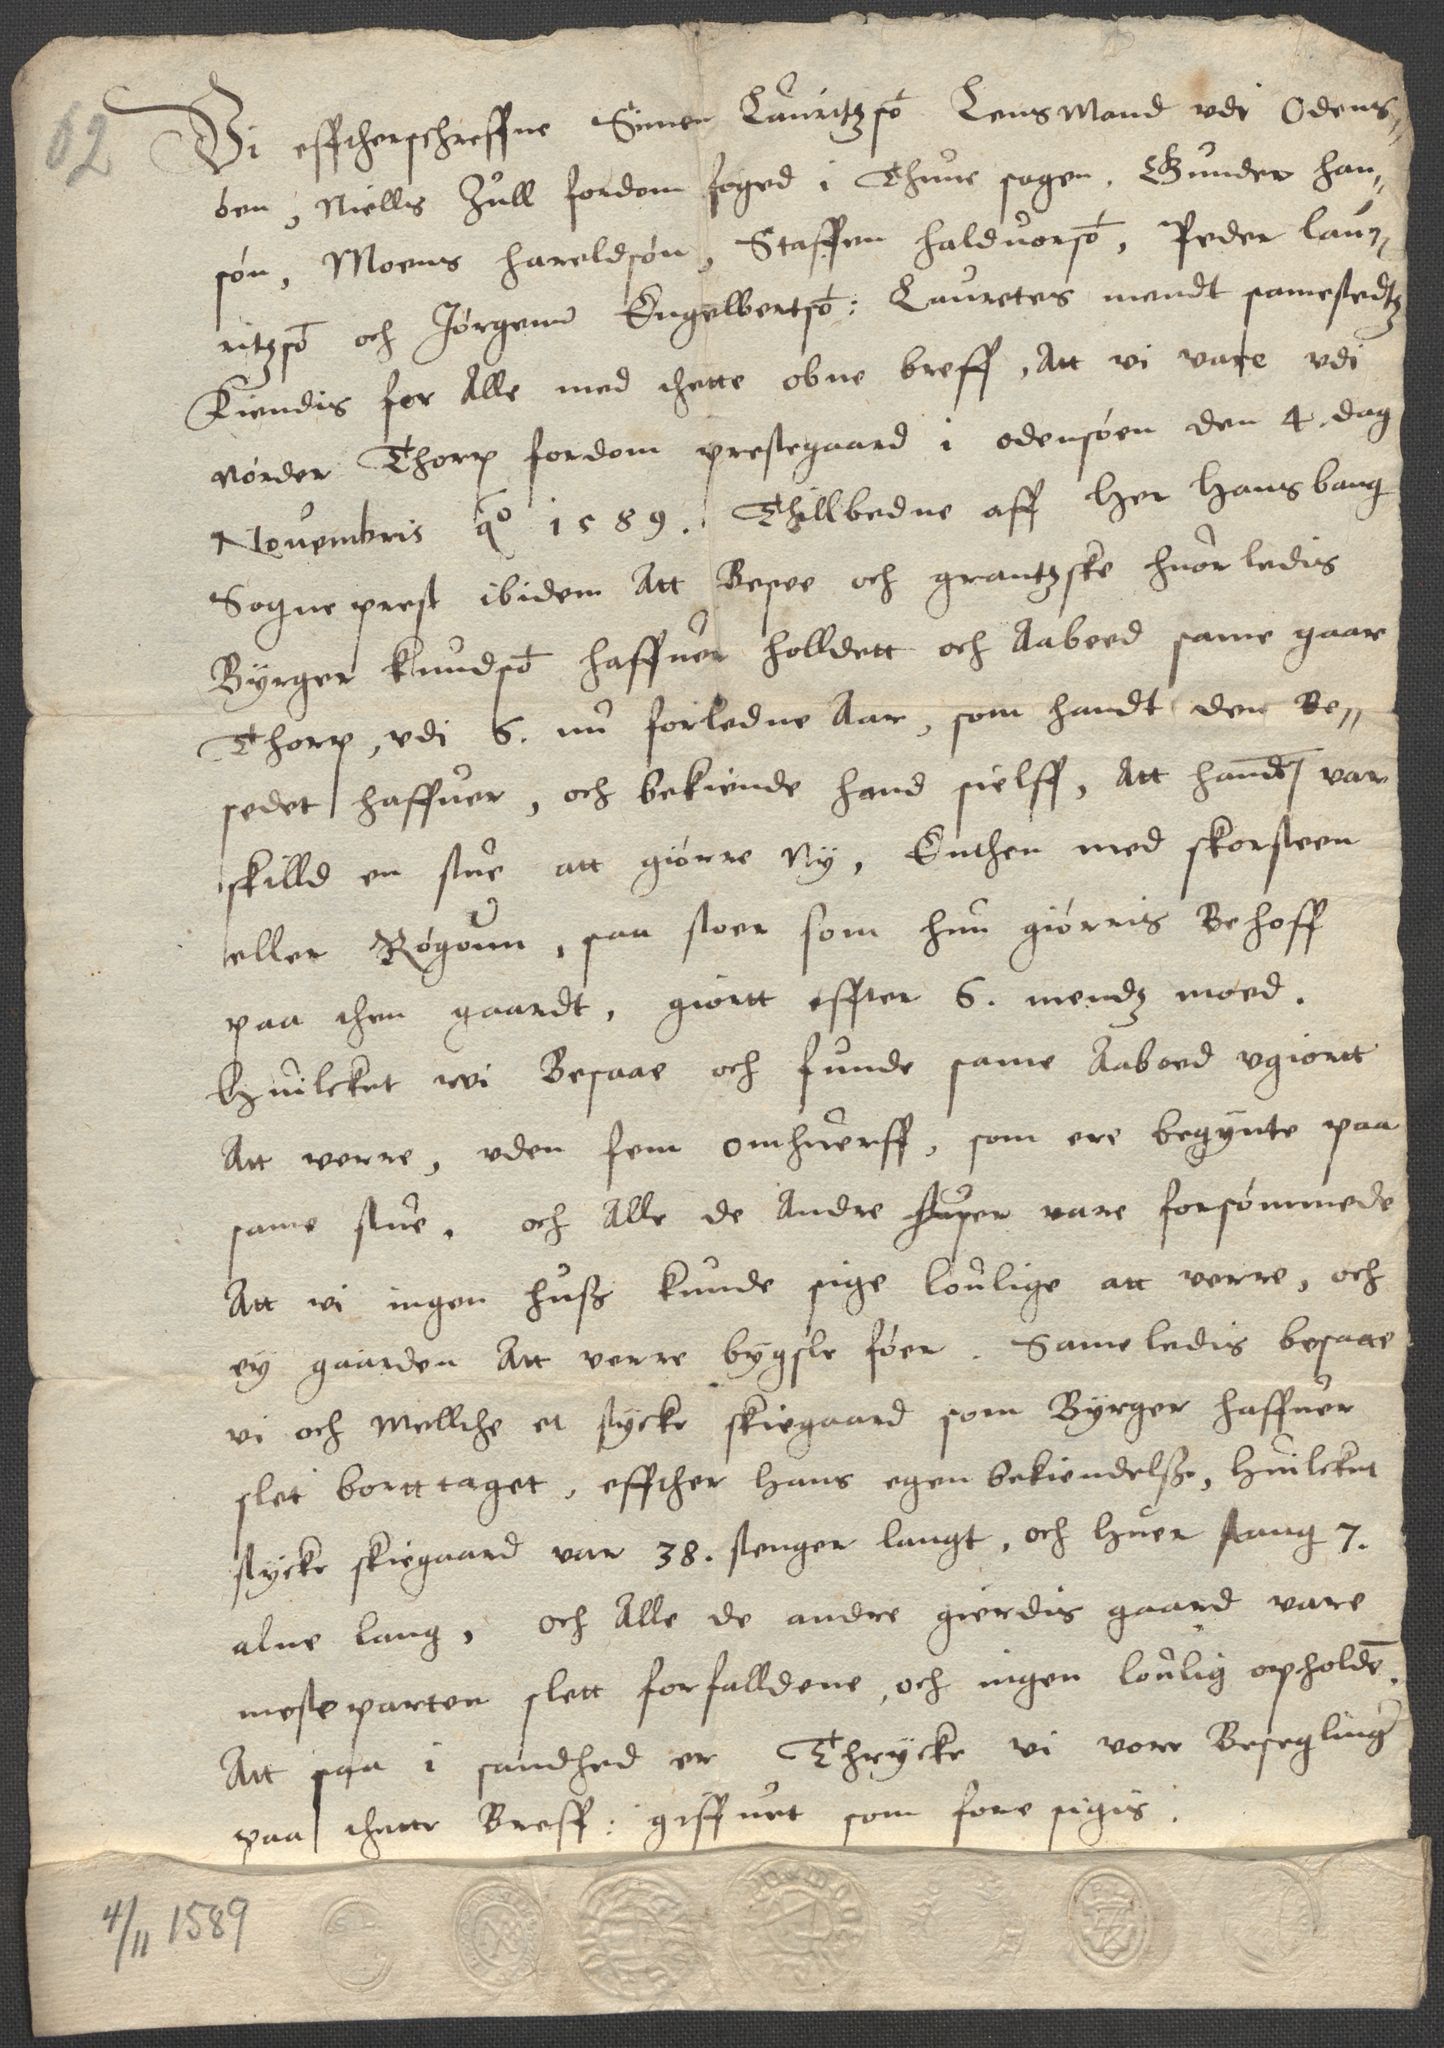 62
Vi efftherschreffne Simen Lauritzsø̄ Lensmand vdi Odens,,
øen, Niellis Jull fordom foged i Thune sogen. Gunder han,,
søn, Moens hareldsøn, Staffen halduorsø̄, Peder lau,,
ritzsø̄ och Jørgenn Engelbertsø̄: Lauretes mendt samestedtz
Kiendis for Alle med thette obne breff, Att vi vare vdi
Nørder Thorp fordom prestegaard i odensøen den 4 dag
Nouembris ao 1589. Thillbedne aff Her Hans bang
Sogneprest ibidem Att Besee och grantzske huorledis
Byrger knudsø̄ haffuer holldett och Aaboed same gaar
Thorp, vdi 6. nu forledne Aar, som handt den Be,,
sedet haffuer, och bekiende hand sielff, Att hands var
skilld en stue att giørre Ny, Enthen med skorsteen
eller Røgoun, saa stoer som hun giørris Behoff
paa then gaardt, giortt effter 6. mendz moed.
Huilcket wi Besaae och funde same Aaboed vgiortt
Att verre, vden fem omhuerff, som ere begynte paa
same stue. och Alle de Andre huser vare forsømmede
Att vi ingen huss kunde sige loulige att verre, och
ey gaarden Att verre bygsle føer. Sameledis besaae
vi och Mellthe et stycke skiegaard som Byrger haffuer
slet borttaget, effther Hans egen bekiendelsse, Huilcket
stycke skiegaard var 38. stenger langt, och Huer stang 7.
alne lang, och Alle de andre gierdis gaard vare
mesteparten slett forfalldene, och ingen loulig opholdē.
Att saa i sandhed er Thrycke vi vore Besegling
paa thette Breff: giffuet som fore sigis.
4/11 1589